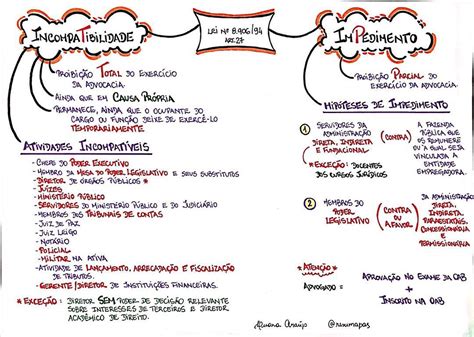 INCOMPATIBILIDADE
LEI Nº 8.906/94
ART. 27
IMPEDIMENTO
PROIBIÇÃO TOTAL DO EXERCÍCIO
DA ADVOCACIA.
AINDA QUE EM CAUSA PRÓPRIA
PERMANECE, AINDA QUE O OCUPANTE DO
CARGO OU FUNÇÃO DEIXE DE EXERCÊ-LO
TEMPORARIAMENTE
ATIVIDADES INCOMPATÍVEIS
- CHEFE DO PODER EXECUTIVO
- MEMBRO DA MESA DO PODER LEGISLATIVO E SEUS SUBSTITUTOS
- DIRETOR DE ÓRGÃOS PÚBLICOS *
- JUÍZES
- MINISTÉRIO PÚBLICO
- SERVIDORES DO MINISTÉRIO PÚBLICO E DO JUDICIÁRIO
- MEMBROS DOS TRIBUNAIS DE CONTAS
- JUIZ DE PAZ
- JUIZ LEIGO
- NOTÁRIO
- POLICIAL
- MILITAR NA ATIVA
- ATIVIDADE DE LANÇAMENTO, ARRECADAÇÃO E FISCALIZAÇÃO
DE TRIBUTOS.
- GERENTE/DIRETOR DE INSTITUIÇÕES FINANCEIRAS.
* EXCEÇÃO: DIRETOR SEM PODER DE DECISÃO RELEVANTE
SOBRE INTERESSES DE TERCEIROS E DIRETOR
ACADÊMICO DE DIREITO.
PROIBIÇÃO PARCIAL DO
EXERCÍCIO DA ADVOCACIA.
HIPÓTESES DE IMPEDIMENTO
1 SERVIDORES DA
ADMINISTRAÇÃO
DIRETA, INDIRETA
E FUNDACIONAL
CONTRA
A FAZENDA
PÚBLICA QUE OS
REMUNERE
OU A QUAL SEJA
VINCULADA A
ENTIDADE
EMPREGADORA.
* EXCEÇÃO: DOCENTES
DOS CURSOS JURÍDICOS
2 MEMBROS DO
PODER
LEGISLATIVO
CONTRA
OU
A FAVOR
DA ADMINISTRAÇÃO
DIRETA,
INDIRETA,
PARAESTATAIS,
CONCESSIONÁRIA
E
PERMISSIONÁRIA
* ATENÇÃO *
ADVOGADO =
APROVAÇÃO NO EXAME DA OAB
+
INSCRITO NA OAB
Araújo
@resumapas